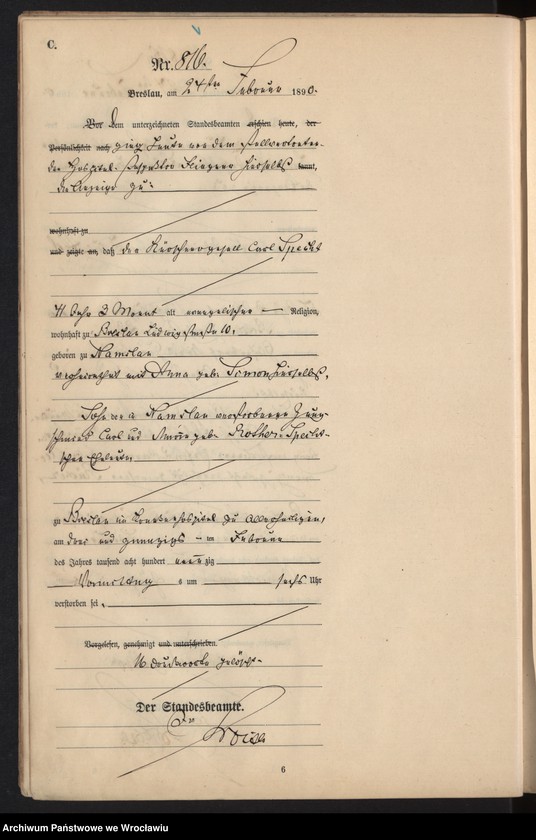 C.
Nr. 816.
Breslau, am 24ten Februar 1890.
Vor dem unterzeichneten Standesbeamten erschien heute, der
Persönlichkeit nach ging heute von dem stellvertreten-
den Hospital-Inspektor hierselbst kannt,
die Anzeige zu:
wohnhaft zu
und zeigte an, daß der Kürschnergesell Carl Specht
41 Jahr 3 Monat alt evangelischer Religion,
wohnhaft zu Breslau Ludwigstraße 10,
geboren zu Namslau
verheirathet mit Anna geb. Simon hierselbst,
Sohn der zu Namslau verstorbenen
Carl und geb. Rother, Specht-
schen Eheleute
zu Breslau im Hospital zu Allerheiligen,
am drei und zwanzigsten Februar
des Jahres tausend acht hundert neunzig
Vormittag s um sechs Uhr
verstorben sei.
Vorgelesen, genehmigt und unterschrieben.
16 Druckworte gelöscht.
Der Standesbeamte.
6
Archiwum Państwowe we Wrocławiu